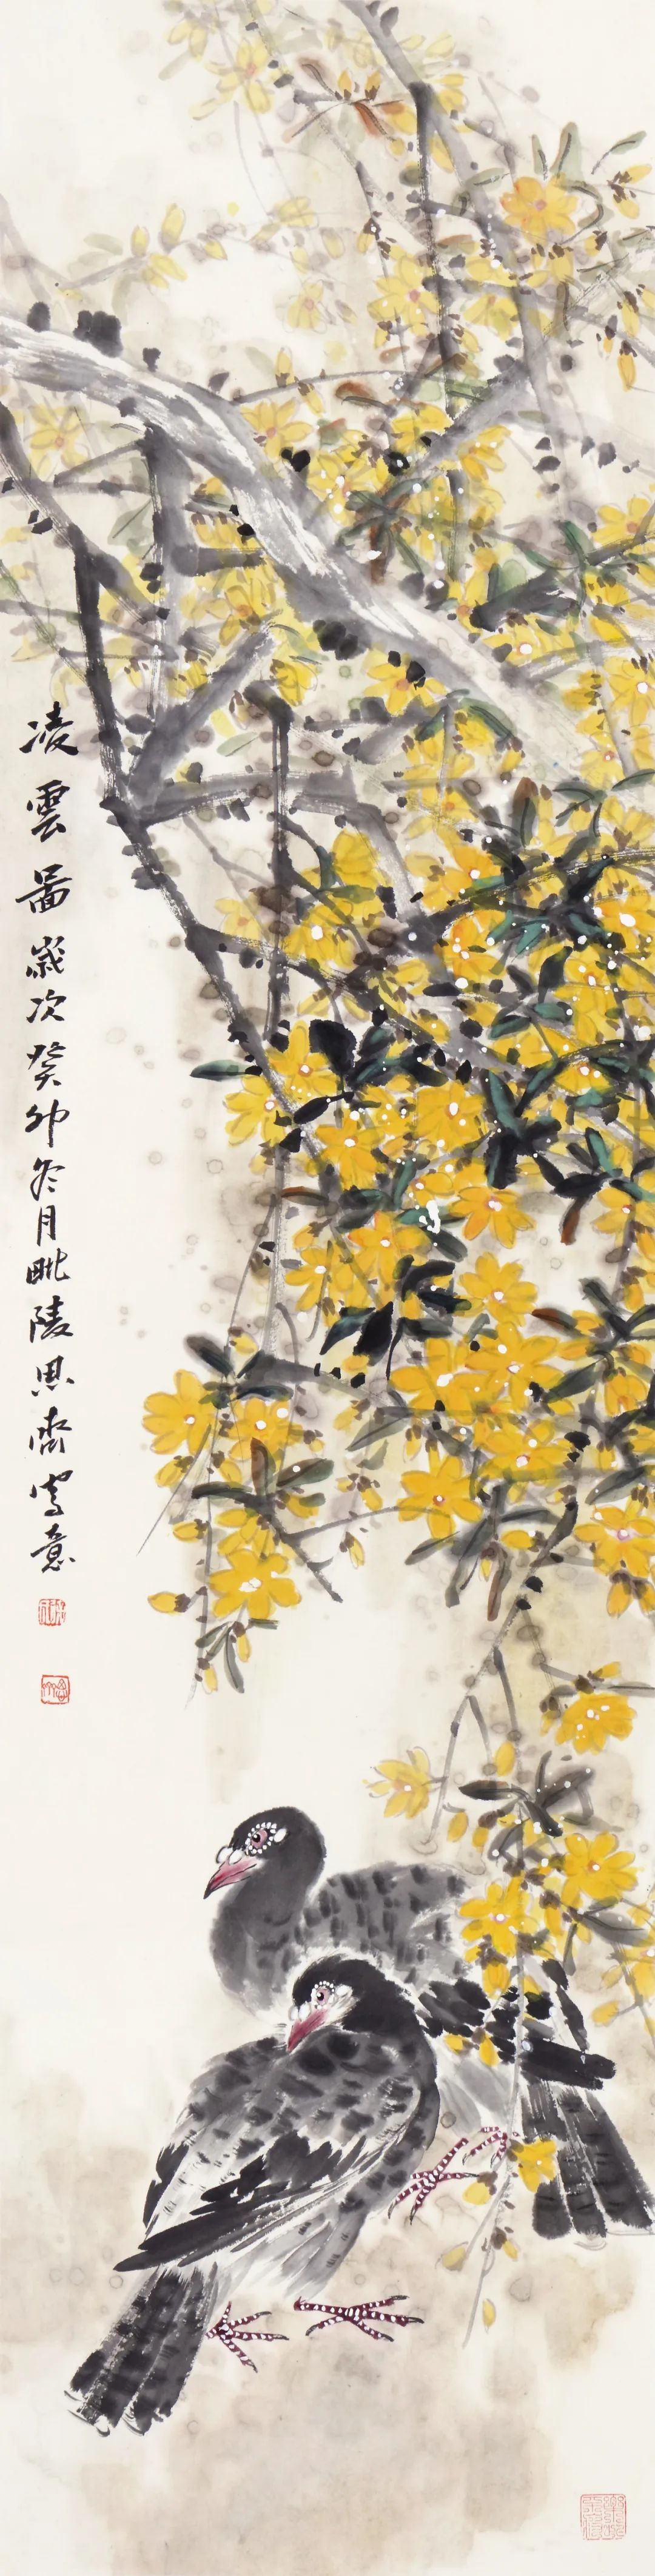 凌雲啚歲次癸卯冬月毗陵思齋寫意